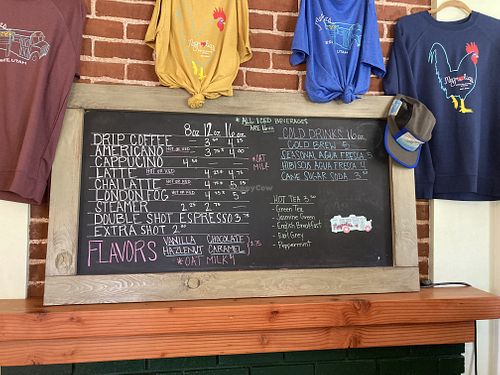 UTAH
UTAH
* ALL ICED BEVERAGES
ARE 16 oz
8 oz 12 oz 16 oz
DRIP COFFEE 3
AMERICANO HOT OR ICED 3 4
CAPPUCINO 4
LATTE HOT OR ICED 4 4
CHAI LATTE HOT OR ICED 4 5
LONDON FOG HOT OR ICED 5
STEAMER 2 2
DOUBLE SHOT ESPRESSO 3
EXTRA SHOT 2
*OAT
MILK
FLAVORS
VANILLA CHOCOLATE
HAZLENUT CARAMEL
.75
*OAT MILK
COLD DRINKS 16 oz
COLD BREW 5
SEASONAL AGUA FRESCA 5
HIBISCUS AGUA FRESCA
CANE SUGAR SODA 3
HOT TEA 3.50
- Green Tea
- Jasmine Green
- English Breakfast
- Earl Grey
- Peppermint